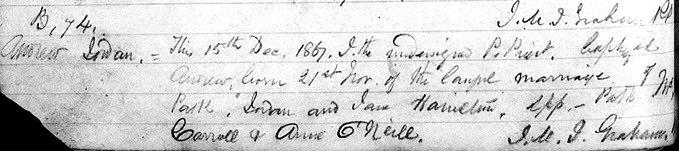 J. M. J. Graham P.P.
B, 74.
Andrew Iordan. = This 15th Dec, 1867. I the undersigned P. Priest. baptized
Andrew, born 21st Nov. of the lawful marriage of
Patk. Iordan and Jane Hamelton. Spp. - Patk
Carroll & Anne O'Neill.
J. M. J. Graham.